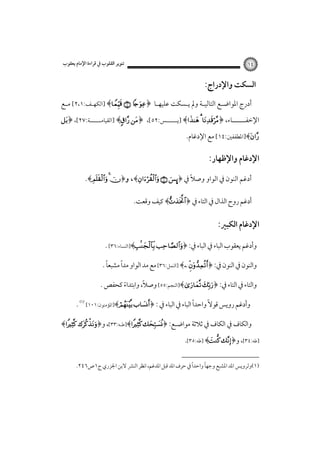 ١٤ تنوير القلوب في قراءة الإمام يعقوب
السكت والإدراج:
أدرج المواضع التالية ولم يسكت عليها ﴿عِوَجَا ۝ قَيِّمٗا﴾ [الكهف:١،٢] مع
الإخفاء، ﴿مَّرۡقَدِنَاۗ هَٰذَا﴾ [يس:٥٢]، ﴿مَنۡۜ رَاقٖ﴾ [القيامة:٢٧]، ﴿بَلۡۜ
رَانَ﴾ [المطففين:١٤] مع الإدغام.
الإدغام والإظهار:
أدغم النون في الواو وصلاً في ﴿يسٓ ۝ وَٱلۡقُرۡءَانِ﴾، و﴿نٓۚ وَٱلۡقَلَمِ﴾.
أدغم روح الذال في التاء في ﴿ٱتَّخَذتُّ﴾ كيف وقعت.
الإدغام الكبير:
وأدغم يعقوب الباء في الباء في: ﴿وَٱلصَّاحِبِ بِٱلۡجَنۢبِ﴾ [النساء:٣٦].
والنون في النون في: ﴿أَتُمِدُّونَنِ﴾ [النمل:٣٦] مع مد الواو مداً مشبعاً.
والتاء في التاء في: ﴿رَبِّكَ تَتَمَارَىٰ﴾ [النجم:٥٥] وصلاً، وابتداءه كحفص.
وأدغم رويس قولاً واحداً الباء في الباء في: ﴿أَنسَابَ بَيۡنَهُمۡ﴾ [المؤمنون:١٠١](١).
والكاف في الكاف في ثلاثة مواضع: ﴿نُسَبِّحَكَ كَثِيرٗا﴾ [طه:٣٣]، و﴿وَنَذۡكُرَكَ كَثِيرًا﴾
[طه:٣٤]، و﴿إِنَّكَ كُنتَ﴾ [طه:٣٥].
(١) ولرويس المد المشبع وجهاً واحداً في حرف المد قبل المدغم، انظر النشر لابن الجزري ج١ص٢٤٦.